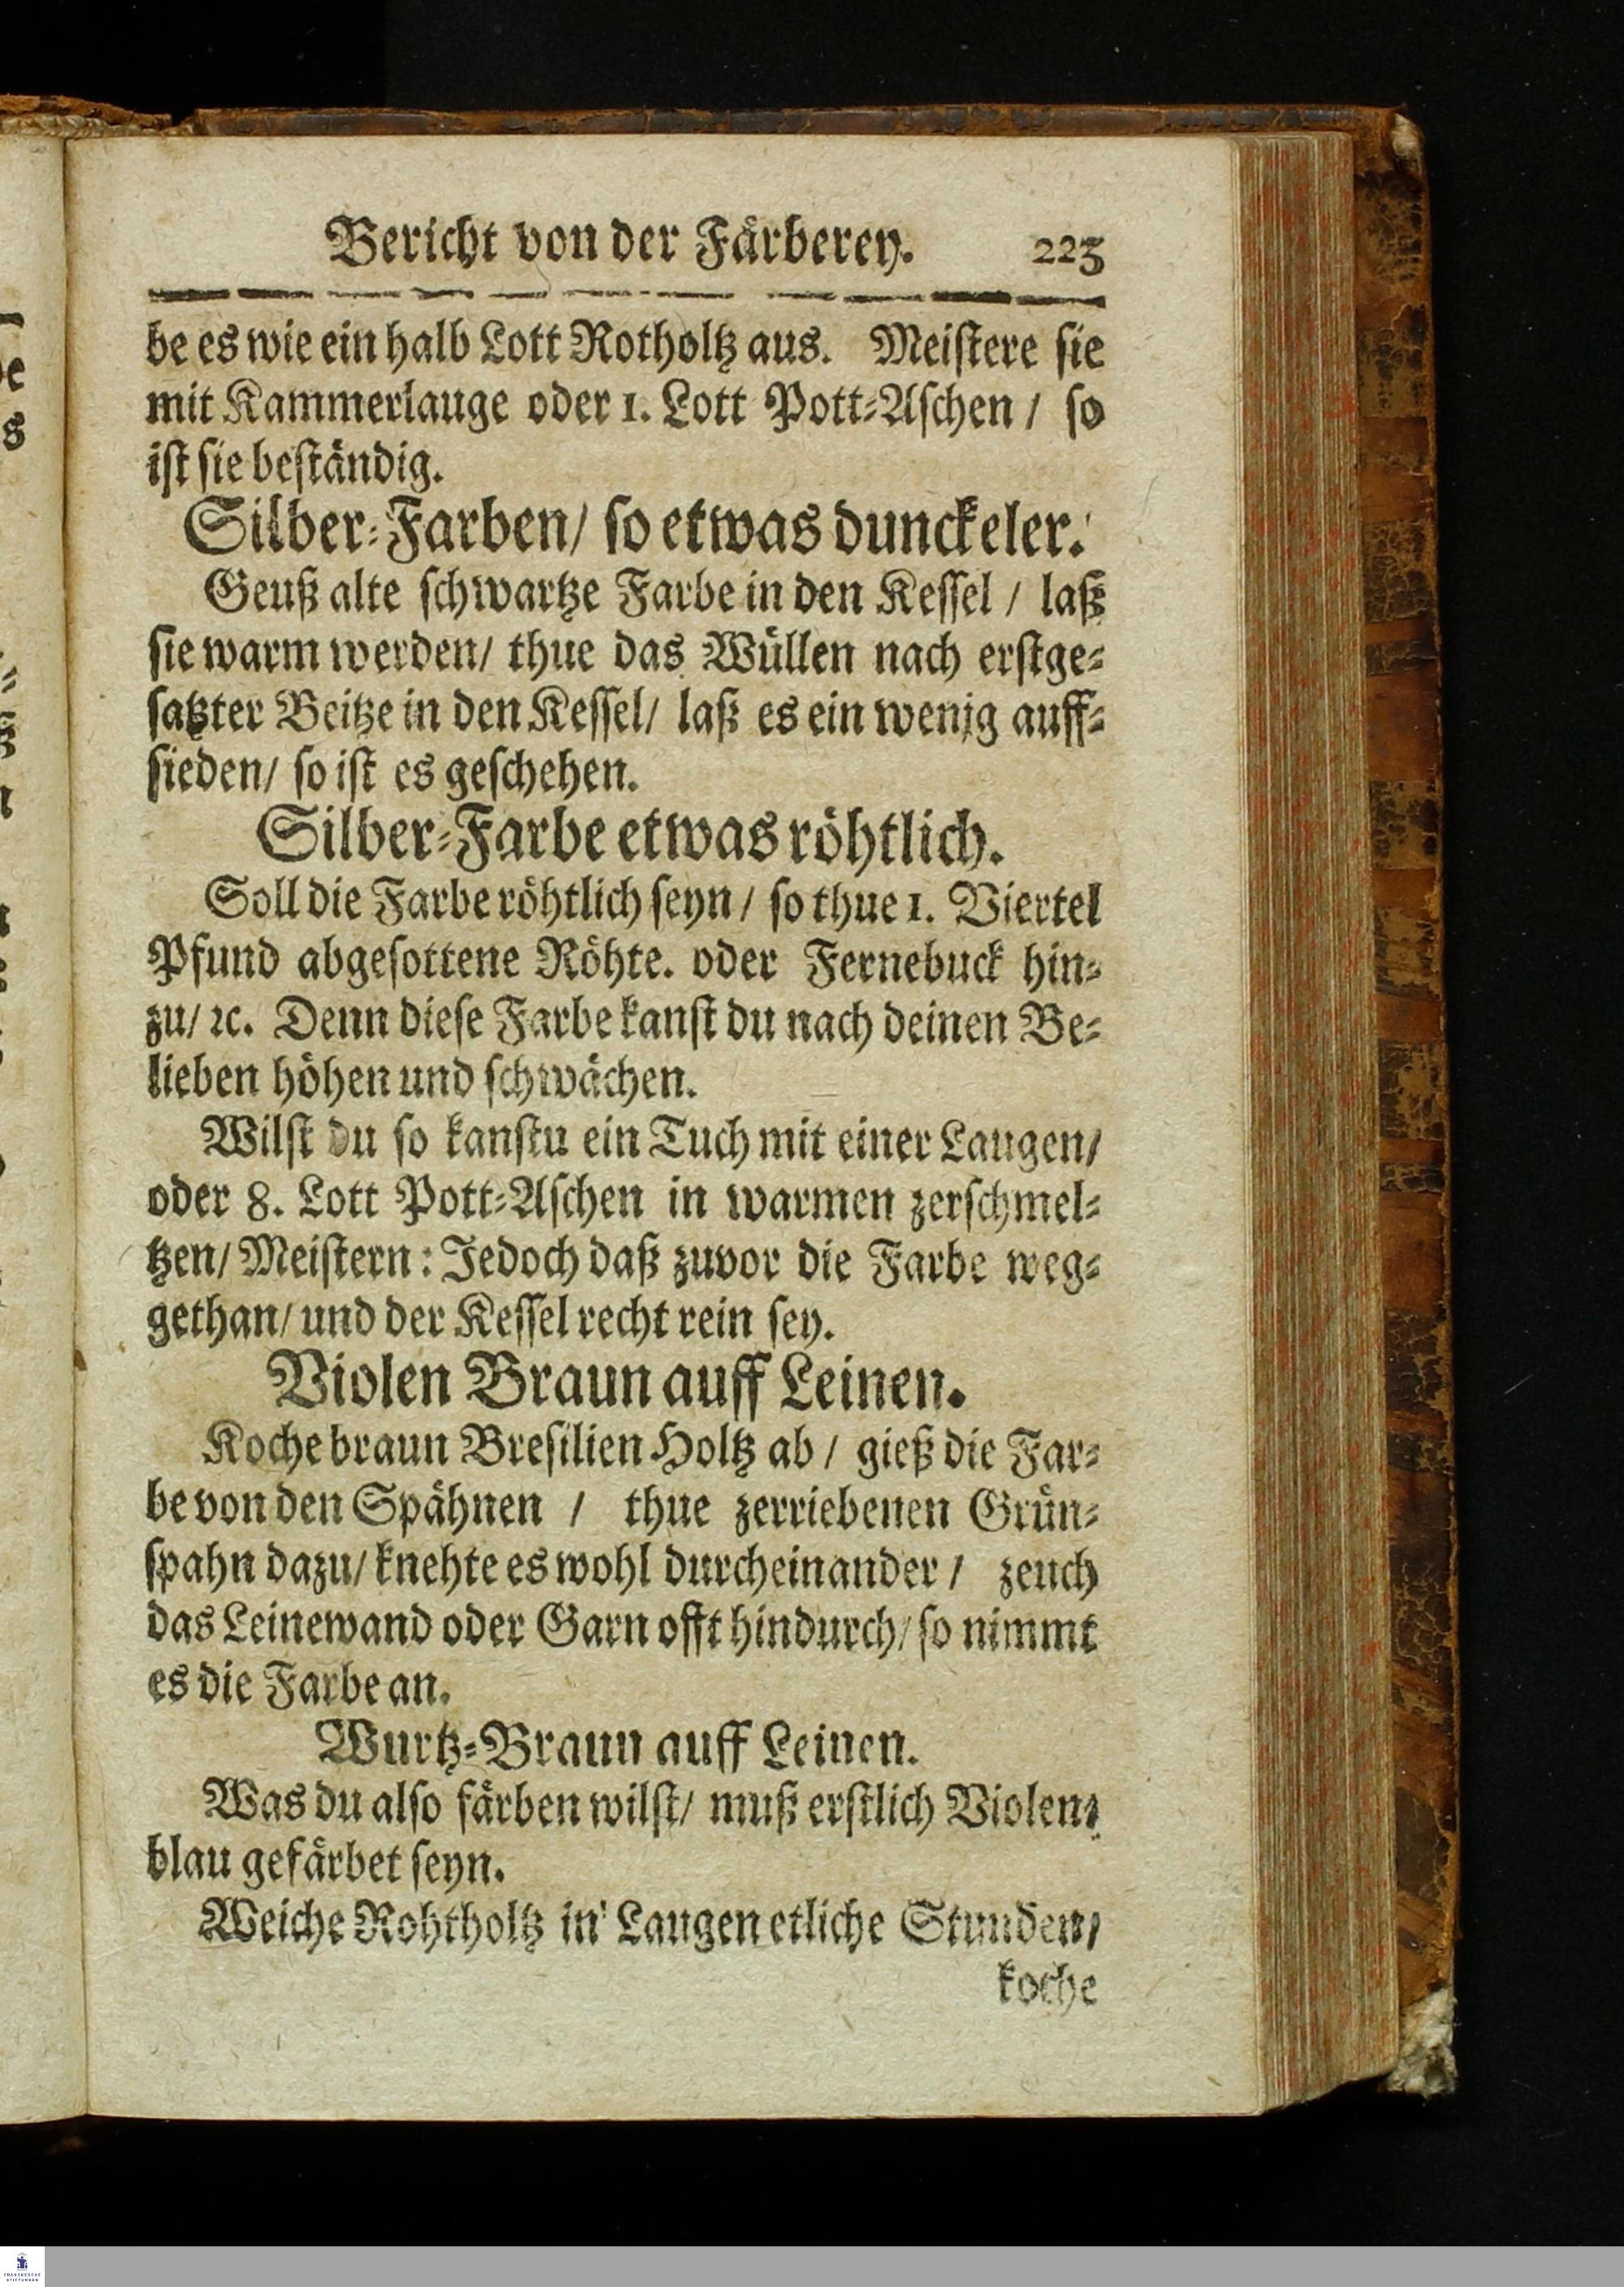 Bericht von der Färberey. 223
be es wie ein halb Lott Rotholtz aus. Meiſtere ſie
mit Kammerlauge oder 1. Lott Pott-Aſchen / ſo
iſt ſie beſtändig.
Silber-Farben/ ſo etwas dunckeler.
Geuß alte ſchwartze Farbe in den Keſſel / laß
ſie warm werden/ thue das Wüllen nach erſtge-
ſatzter Beitze in den Keſſel/ laß es ein wenig auff-
ſieden/ ſo iſt es geſchehen.
Silber-Farbe etwas röhtlich.
Soll die Farbe röhtlich ſeyn / ſo thue 1. Viertel
Pfund abgeſottene Röhte. oder Fernebuck hin-
zu/ ꝛc. Denn dieſe Farbe kanſt du nach deinen Be-
lieben höhen und ſchwächen.
Wilſt du ſo kanſtu ein Tuch mit einer Laugen/
oder 8. Lott Pott-Aſchen in warmen zerſchmel-
tzen/ Meiſtern: Jedoch daß zuvor die Farbe weg-
gethan/ und der Keſſel recht rein ſey.
Violen Braun auff Leinen.
Koche braun Breſilien Holtz ab / gieß die Far-
be von den Spähnen / thue zerriebenen Grün-
ſpahn dazu/ knehte es wohl durcheinander / zeuch
das Leinewand oder Garn offt hindurch/ ſo nimmt
es die Farbe an.
Wurtz-Braun auff Leinen.
Was du alſo färben wilſt/ muß erſtlich Violen-
blau gefärbet ſeyn.
Weiche Rohtholtz in Laugen etliche Stunden/
koche